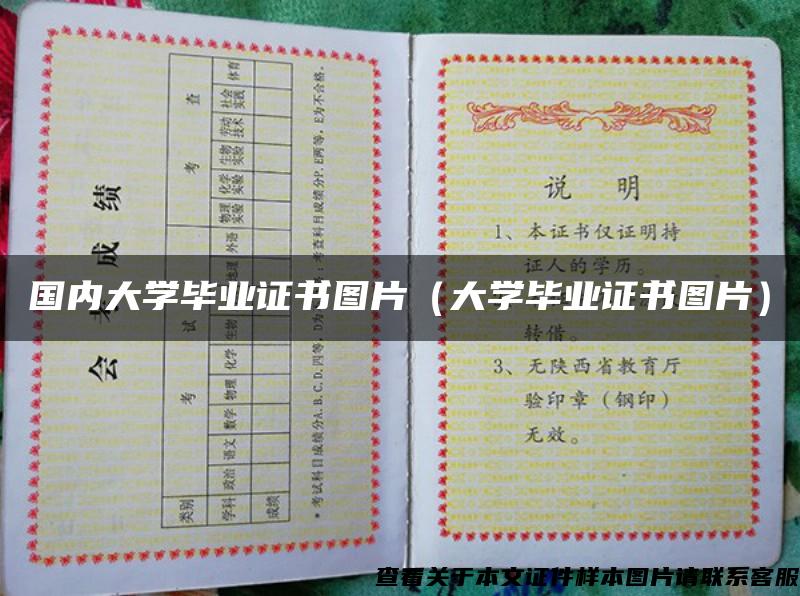 会考成绩
类别 考试 考查
学科 政治 语文 数学 物理 化学 生物 地理 外语 物理实验 化学实验 生物实验 劳动技术 社会实践 体育
成绩
说 明
1、本证书仅证明持
证人的学历。
转借。
3、无陕西省教育厅
验印章（钢印）
无效。
国内大学毕业证书图片（大学毕业证书图片）
查看关于本文证件样本图片请联系客服